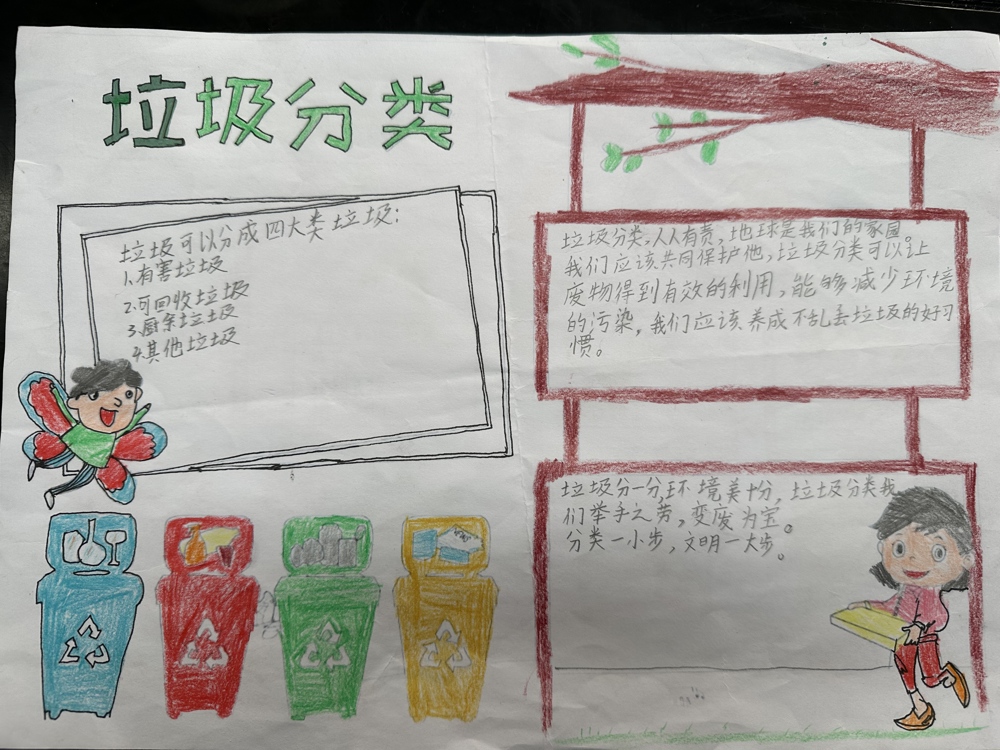 垃圾分类
垃圾可以分成四大类垃圾：
1.有害垃圾
2.可回收垃圾
3.厨余垃圾
4.其他垃圾
垃圾分类，人人有责，地球是我们的家园。
我们应该共同保护他，垃圾分类可以让
废物得到有效的利用，能够减少环境
的污染，我们应该养成不乱丢垃圾的好习
惯。
垃圾分一分，环境美十分，垃圾分类我
们举手之劳，变废为宝。
分类一小步，文明一大步。